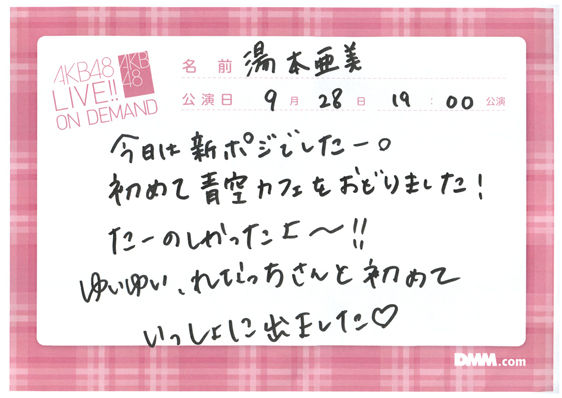 AKB48
LIVE!!
ON DEMAND
AKB
48
名前 湯本亜美
公演日 9月 28日 19:00 公演
今日は新ポジでしたー。
初めて青空カフェをおどりました！
たーのしかったよ〜!!
ゆいゆい、れなっちさんと初めて
いっしょに出ました♡
DMM.com